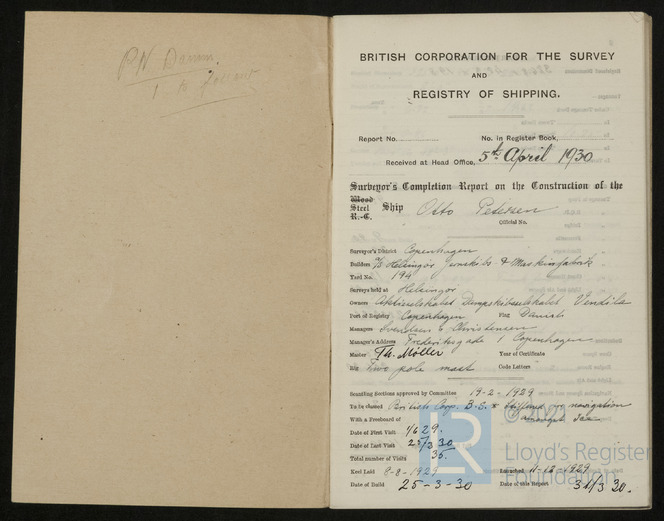 PN Damm
1 to follow
BRITISH CORPORATION FOR THE SURVEY
AND
REGISTRY OF SHIPPING.
Report No. No. in Register Book,
Received at Head Office, 5th April 1930
Surveyor's Completion Report on the Construction of the
Wood
Steel Ship Otto Petersen
R.-C.
Official No.
Surveyor's District Copenhagen
Builders A/S Helsingör Jernskibs & Maskinfabrik
Yard No. 194
Surveys held at Helsingor
Owners Aktieselskabet Dampskibsselskabet Vendila
Port of Registry Copenhagen Flag Danish
Managers Svendsen & Christensen
Manager's Address Frederiksgade 1 Copenhagen
Master Th. Möller Year of Certificate
Rig Two pole mast Code Letters
Scantling Sections approved by Committee 19-2-1929
To be classed British Corp. B.S. * Stiffened for navigation
amongst Ice
With a Freeboard of
Date of First Visit 1/6 29.
Date of Last Visit 25/3 30
Total number of Visits 35.
Keel Laid 8-8-1929 Launched 11-12-1929
Date of Build 25-3-30 Date of this Report 31/3 30.
LR
Lloyd's Register
Foundation